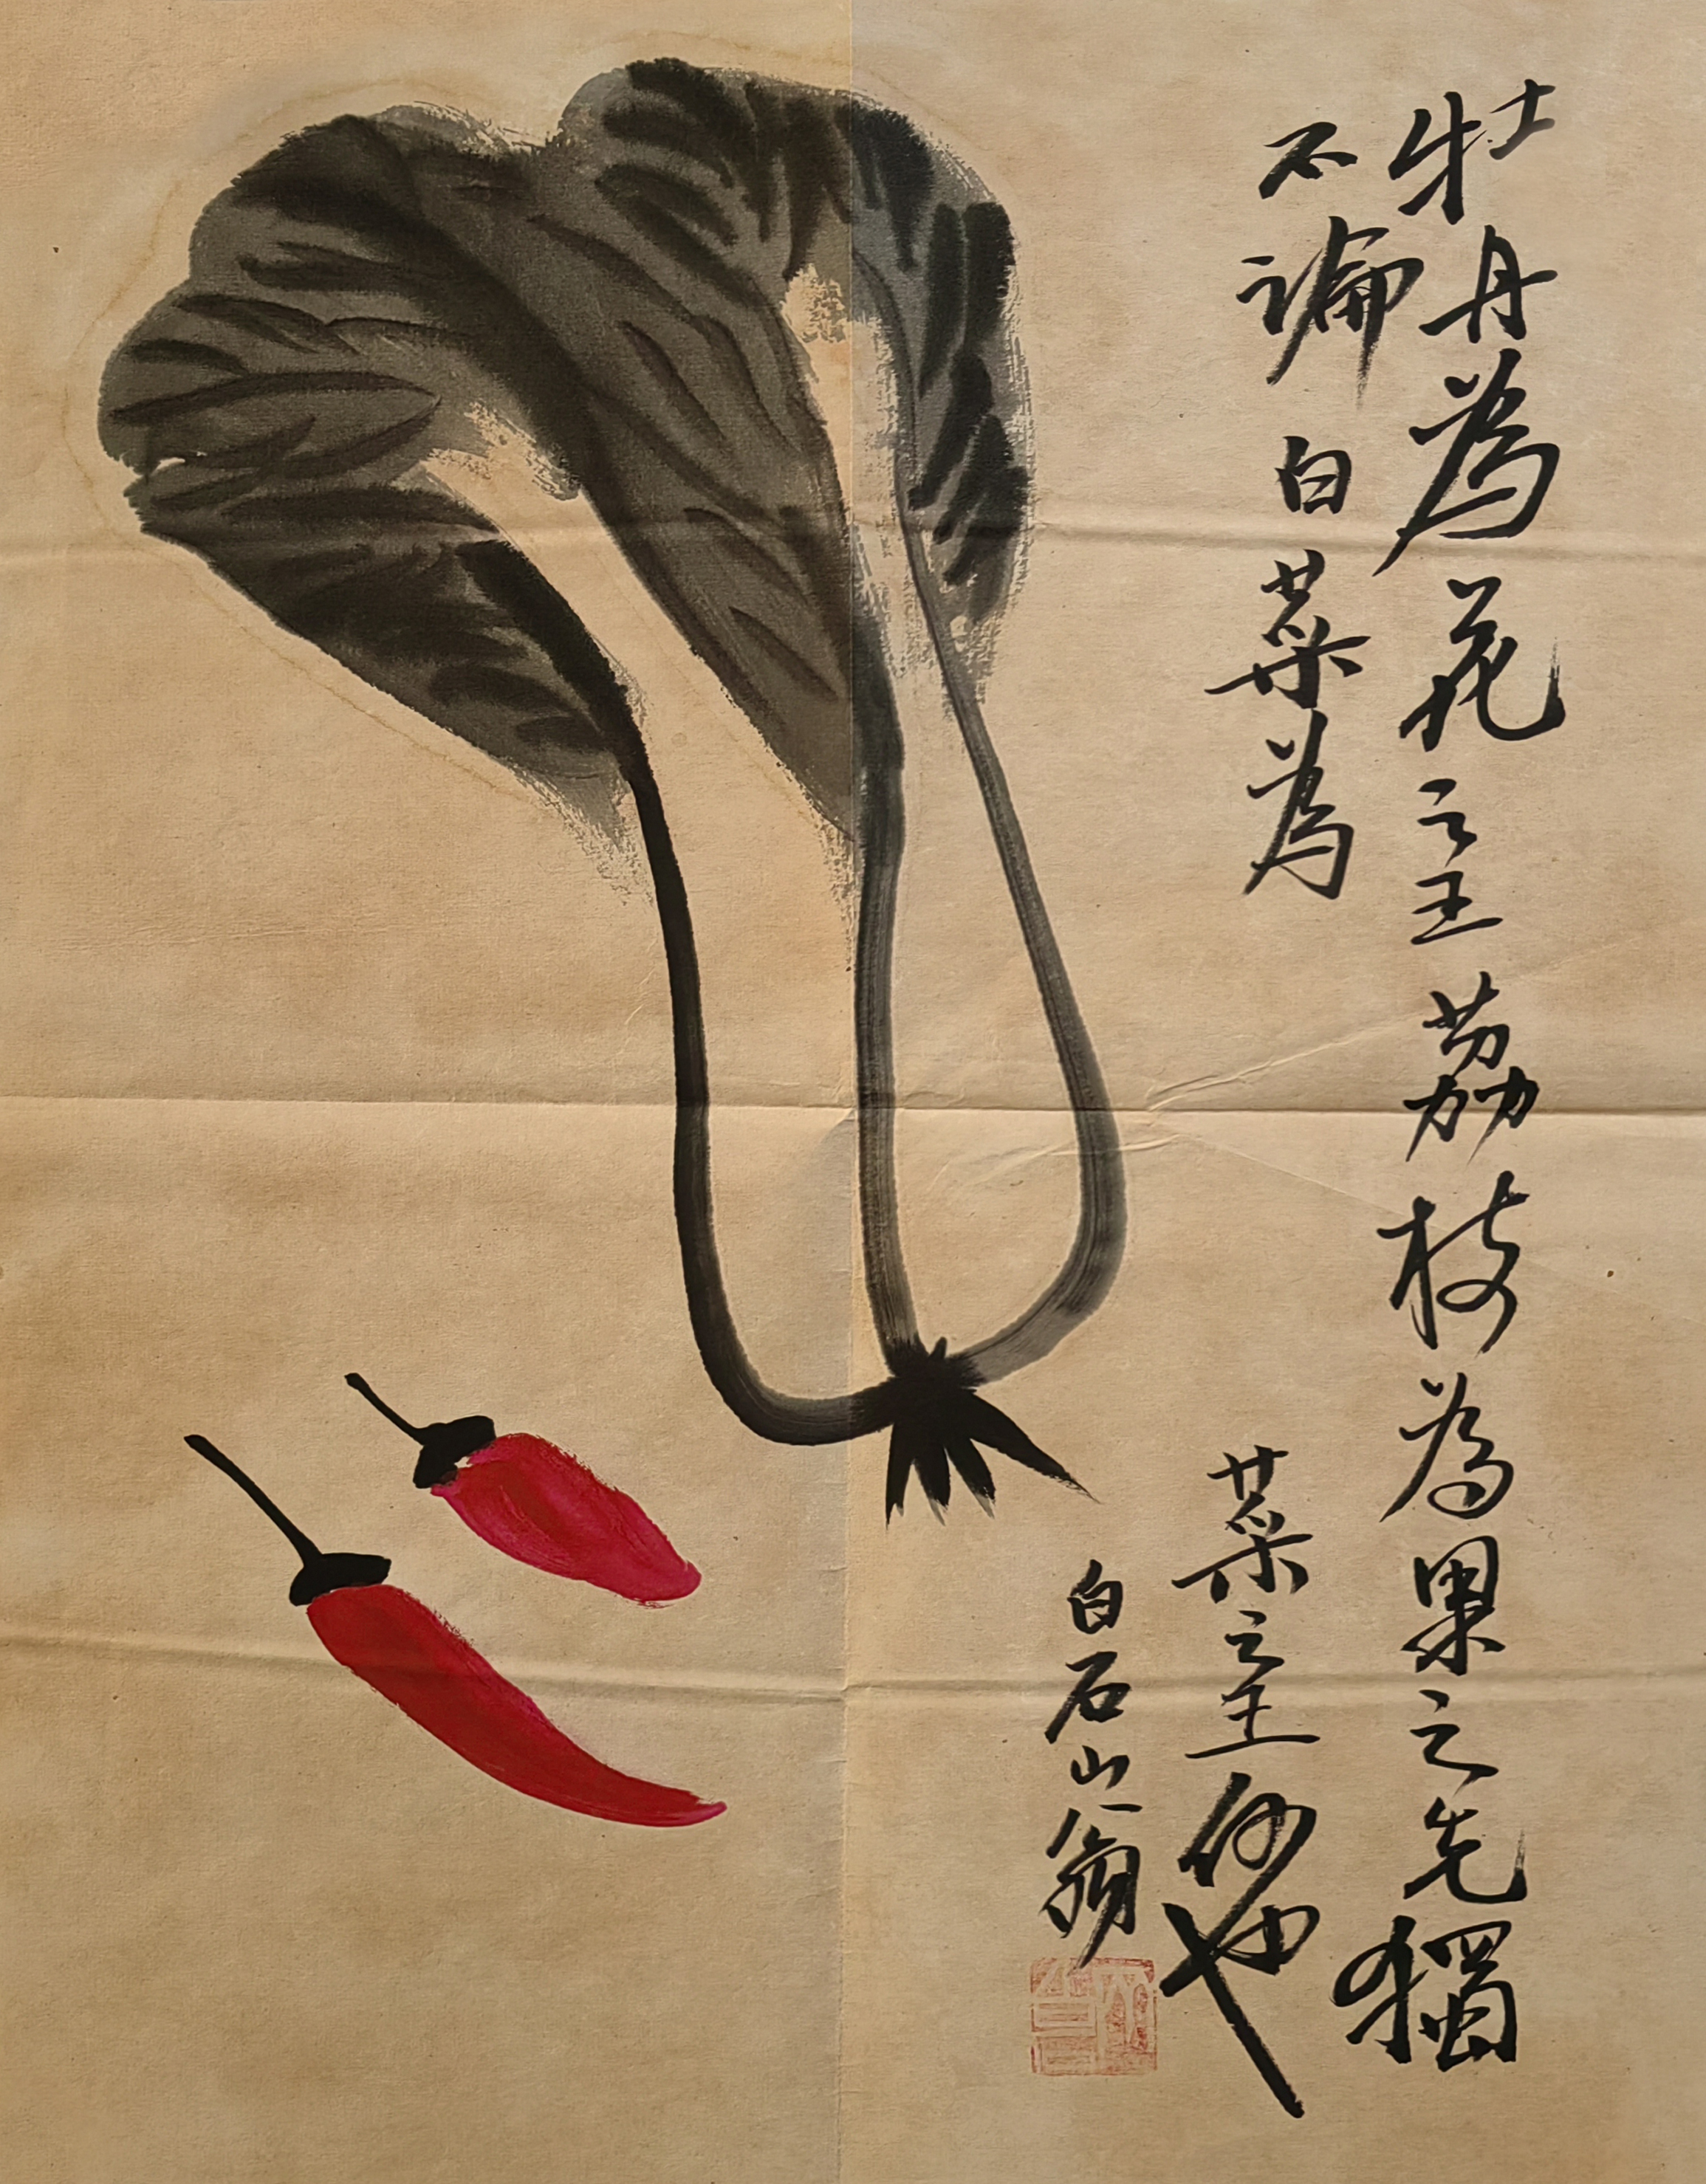 牡丹為花之王荔枝為果之先獨
不論白菜為菜之王何也
白石山翁